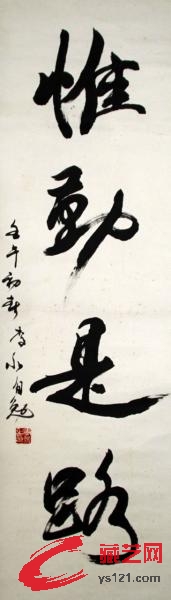 惟勤是路
壬午初春李永自勉
藏艺网
ys121.com